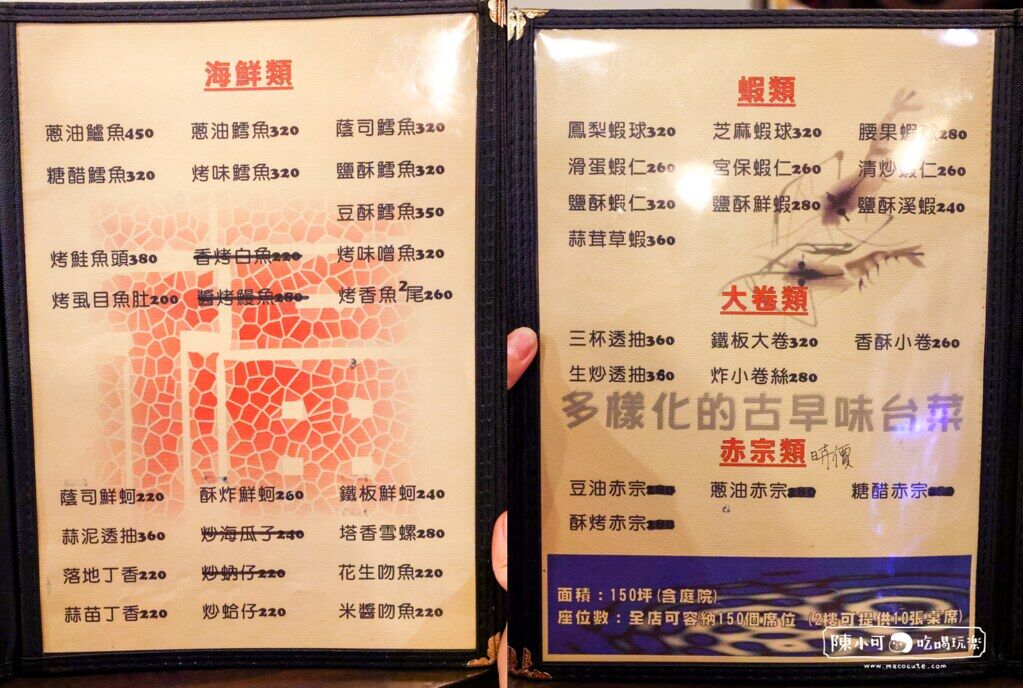 海鮮類
蔥油鱸魚450 蔥油鱈魚320 蔭司鱈魚320
糖醋鱈魚320 烤味鱈魚320 鹽酥鱈魚320
豆酥鱈魚350
烤鮭魚頭380 香烤白魚220 烤味噌魚320
烤虱目魚肚200 醬烤鰻魚280 烤香魚2尾260
蔭司鮮蚵220 酥炸鮮蚵260 鐵板鮮蚵240
蒜泥透抽360 炒海瓜子240 塔香雪螺280
落地丁香220 炒蚋仔220 花生吻魚220
蒜苗丁香220 炒蛤仔220 米醬吻魚220
蝦類
鳳梨蝦球320 芝麻蝦球320 腰果蝦球280
滑蛋蝦仁260 宮保蝦仁260 清炒蝦仁260
鹽酥蝦仁320 鹽酥鮮蝦280 鹽酥溪蝦240
蒜茸草蝦360
大卷類
三杯透抽360 鐵板大卷320 香酥小卷260
生炒透抽360 炸小卷絲280
多樣化的古早味台菜
赤宗類 時價
豆油赤宗280 蔥油赤宗280 糖醋赤宗280
酥烤赤宗280
面積：150坪(含庭院)
座位數：全店可容納150個席位 (2樓可提供10張桌席)
陳小可 吃喝玩樂
www.mecocute.com